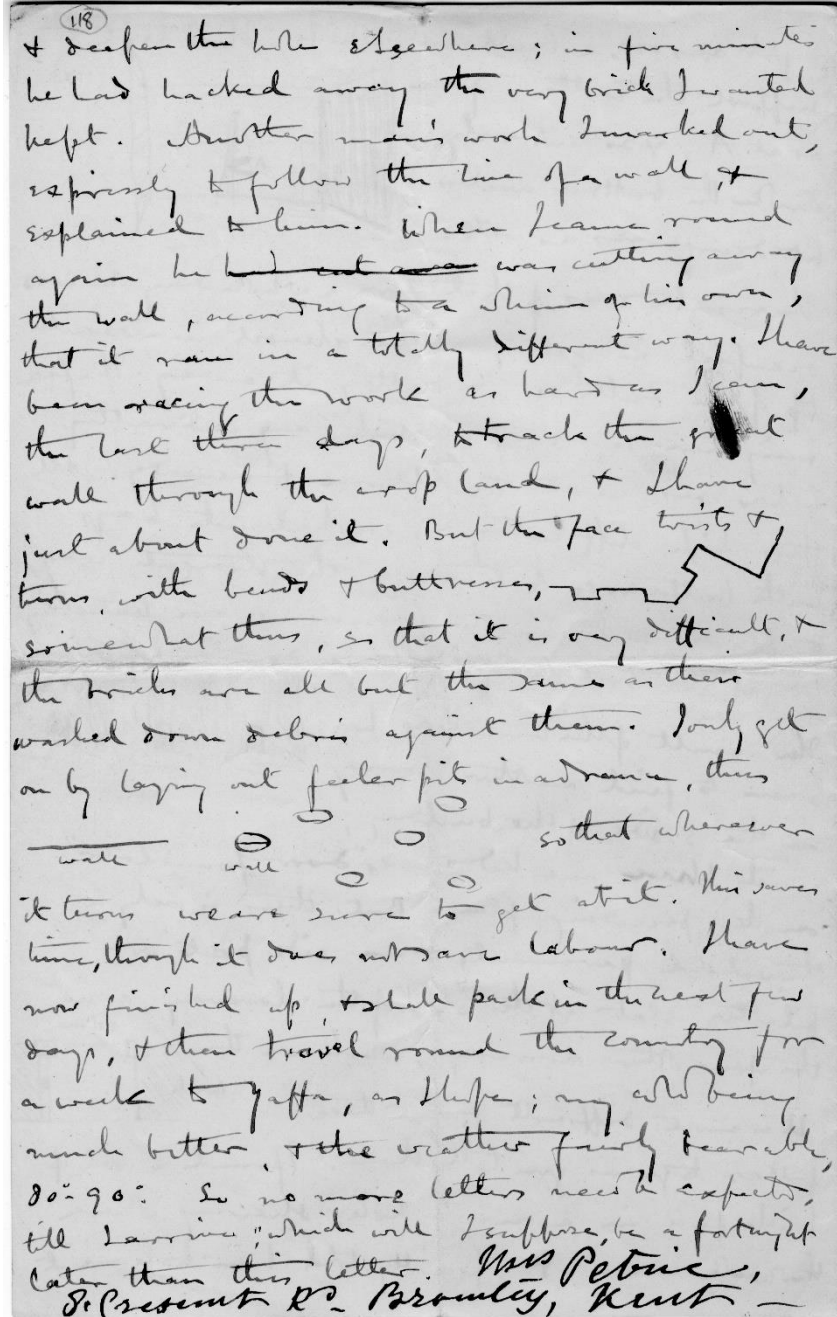 118
& deepen the hole elsewhere; in five minutes
he had hacked away the very brick I wanted
kept. Another man's work I marked out,
expressly to follow the line of a wall, &
explained to him. When I came round
again he had cut awa was cutting away
the wall, according to a whim of his own,
that it ran in a totally different way. I have
been racing the work as hard as I can,
the last three days, to track the great
wall through the crop land, & I have
just about done it. But the face twists &
turns, with bends & buttresses,
somewhat thus, so that it is very difficult, &
the bricks are all but the same as their
washed down debris against them. I only get
on by laying out feeler pits in advance, thus
so that wherever
wall wall
it turns we are sure to get at it. This saves
time, though it does not save labour. I have
now finished up, & shall pack in the next few
days, & then travel round the country for
a week to Yaffa, as I hope; my cold being
much better, & the weather fairly bearable,
80°-90°. So no more letters need be expected,
till I arrive; which will I suppose, be a fortnight
later than this letter. Mrs Petrie,
8. Crescent Rd. Bromley, Kent —